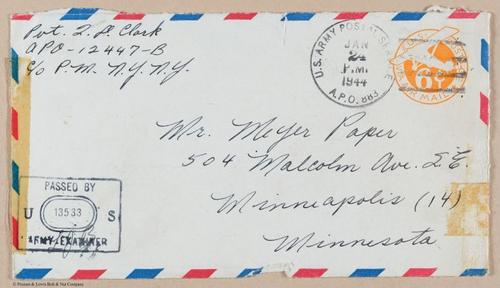 Pvt. L. D. Clark
APO-12447-B
C/o P.M. N.Y. N.Y.
U.S. ARMY POSTAL SERVICE
JAN
24
P.M.
1944
A.P.O. 883
6¢
AIR MAIL
Mr. Meyer Paper
504 Malcolm Ave. S.E.
Minneapolis (14)
Minnesota
PASSED BY
U 13533 S
ARMY EXAMINER
© Possum & Lewis Bolt & Nut Company